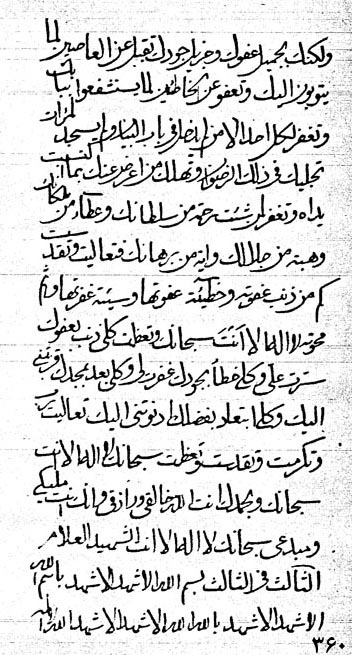 ولكنك بجميل عفوك وجزيل جودك تقبل عن العاصين لما
يتوبون اليك وتعفو عن الخاطئين لما يستشفعوا
وتغفر لكل احد الا من
تجليك في ذلك وتهلك من اعرض عنك بما
يداه وتغفر لمن شئت رحمة من سلطانك وعطاء من
وهبته من جلالك واية من برهانك فتعاليت
كم من ذنب عفوته وخطيئة عفوتها وسيئة غفرتها
محوته لا اله الا انت سبحانك وتعظمت كل ذنب بعفوك
سترت علي وكل خطأ بجودك غفرت لي وكل بعد بمجدك
اليك وكل ابتعاد بفضلك ادنوتني اليك تعاليت
وتكرمت وتقدست وتعظمت سبحانك لا اله الا انت
سبحانك وبحمدك انت الله خالقي ورازقي وانك انت مليكي
ومبدعي سبحانك لا اله الا انت الشهيد العلام
الثالث في الثالث بسم الله الاشهد الاشهد باسم الله
الاشهد الاشهد بالله الله الاشهد الاشهد الله
٣۶٠